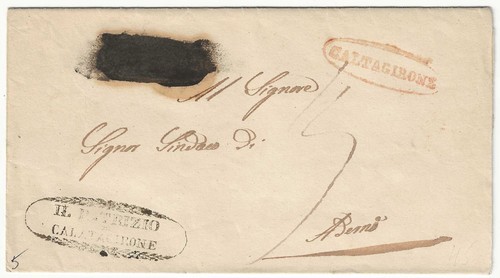 CALTAGIRONE
Al Signore
Signor Sindaco di
Adernò
IL PATRIZIO
CALATAGIRONE
5